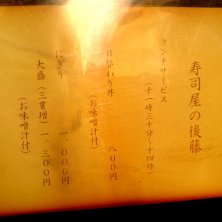 寿司屋の後藤
ランチサービス
(十一時三十分~十四時)
日替わり丼 八〇〇円
(お味噌汁付)
にぎり 一、〇〇〇円
大盛(三貫増)一、二〇〇円
(お味噌汁付)